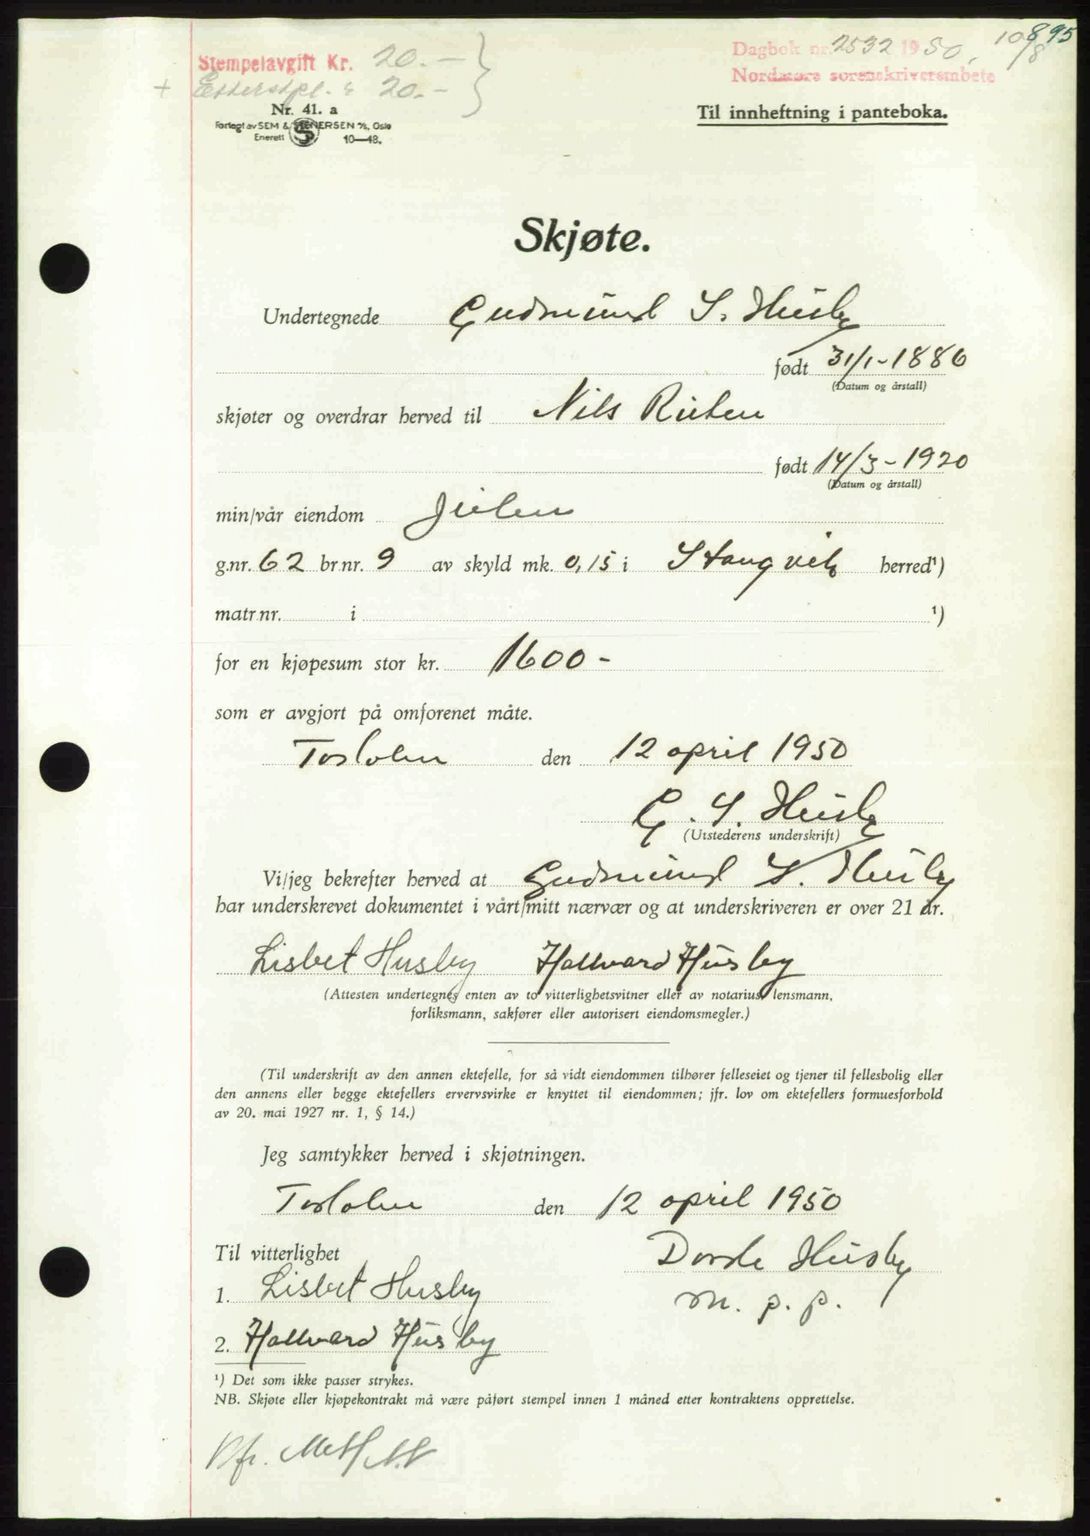 895
Stempelavgift Kr. 20.-
Dagbok nr. 2532 1950, 10/8
+ Etterstpl. " 20.-
Nordmøre sorenskriverembete
Nr. 41. a
Til innheftning i panteboka.
Forlagt av SEM & STENERSEN A/S, Oslo
Enerett 10-48.
Skjøte.
Undertegnede Gudmund S. Husby
født 31/1-1886
(Datum og årstall)
skjøter og overdrar herved til Nils Ruten
født 14/3-1920
(Datum og årstall)
min/vår eiendom
g.nr. 62 br.nr. 9 av skyld mk. 0,15 i Stangvik herred¹)
matr.nr. i ¹)
for en kjøpesum stor kr. 1600-
som er avgjort på omforenet måte.
den 12 april 1950
G. S. Husby
(Utstederens underskrift)
Vi/jeg bekrefter herved at Gudmund S. Husby
har underskrevet dokumentet i vårt/mitt nærvær og at underskriveren er over 21 år.
Lisbet Husby Hallvard Husby
(Attesten undertegnes enten av to vitterlighetsvitner eller av notarius, lensmann,
forliksmann, sakfører eller autorisert eiendomsmegler.)
(Til underskrift av den annen ektefelle, for så vidt eiendommen tilhører felleseiet og tjener til fellesbolig eller
den annens eller begge ektefellers ervervsvirke er knyttet til eiendommen; jfr. lov om ektefellers formuesforhold
av 20. mai 1927 nr. 1, § 14.)
Jeg samtykker herved i skjøtningen.
den 12 april 1950
Til vitterlighet
Dorde Husby
1. Lisbet Husby
m. p. p.
2. Hallvard Husby
¹) Det som ikke passer strykes.
NB. Skjøte eller kjøpekontrakt må være påført stempel innen 1 måned etter kontraktens opprettelse.